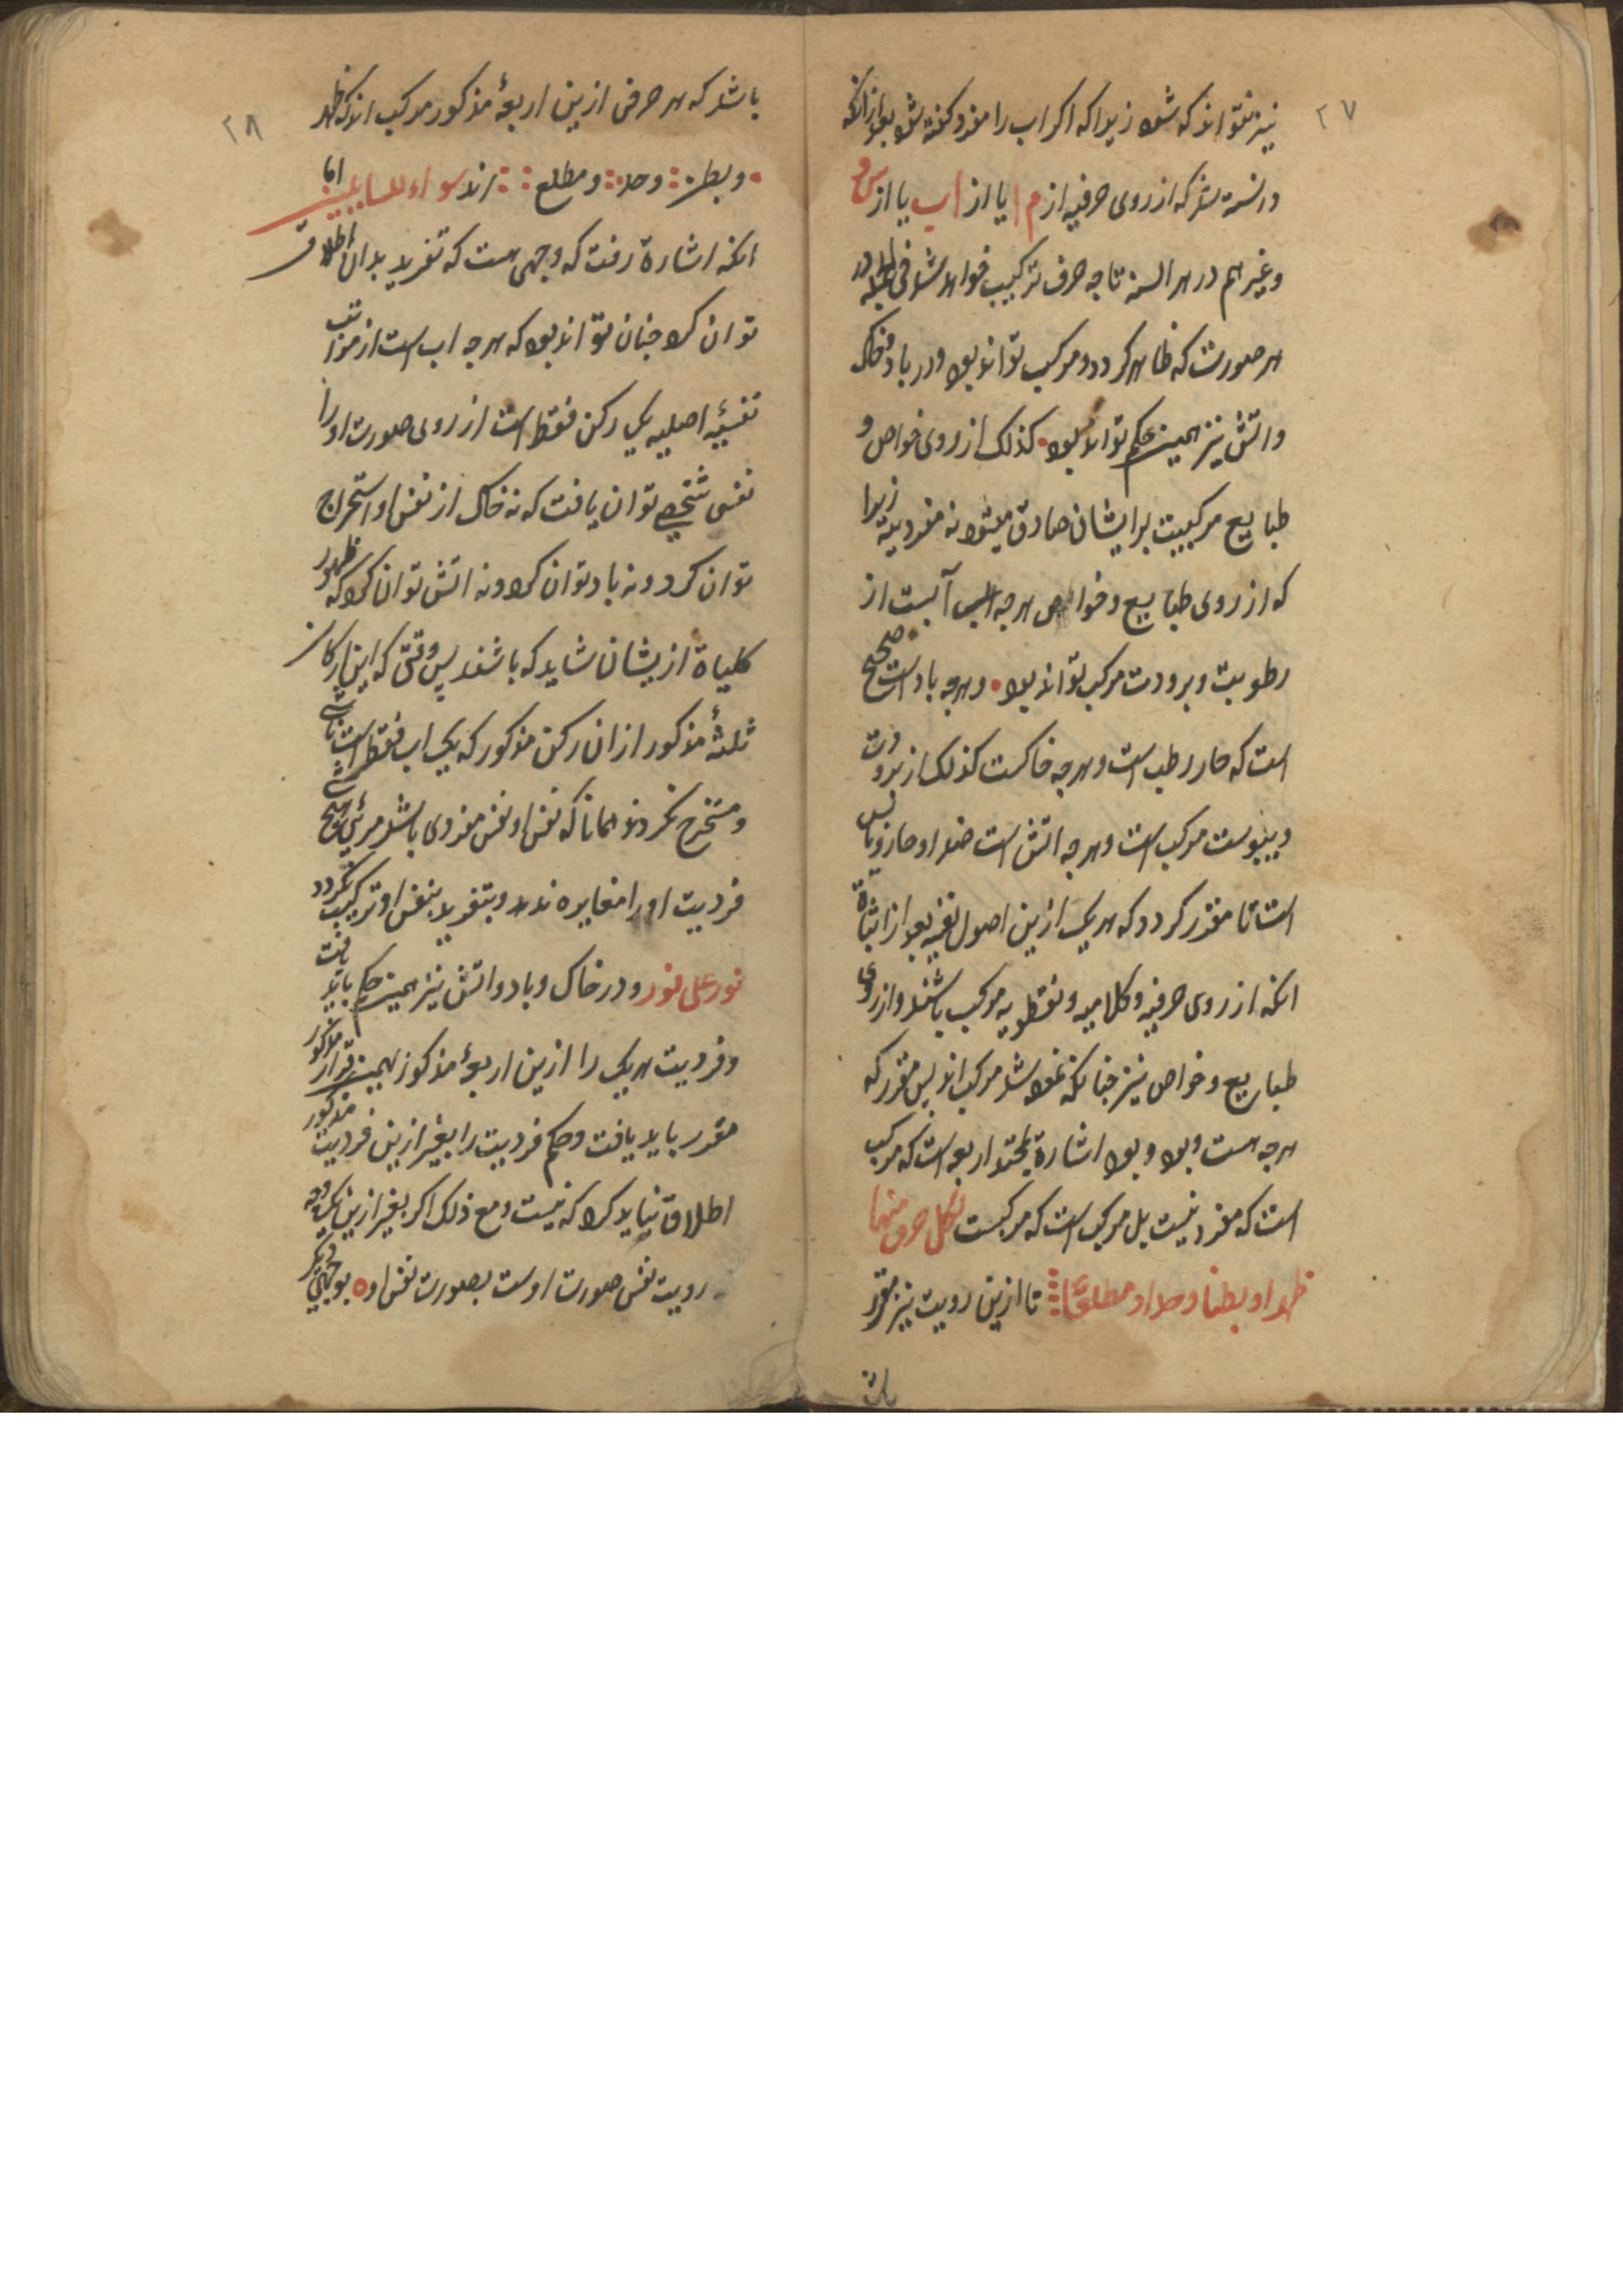 ۲۷
نیز نتواند که شود زیرا که اگر اب را مفرد گفته شود بعد از انکه
دانسته شد که از روی حرفیه از م ا یا از اب یا از س و
وغیرهم در هر السنه تا چه حرف ترکیب خواهد شد فی الجمله در
هر صورت که ظاهر کردد و مرکب تواند بود و در باد و خاک
واتش نیز همین حکم تواند بود • کذلک از روی خواص و
طبایع مرکبیت بر ایشان صادق میشود نه مفردیه زیرا
که از روی طبایع و خواص هرجه آبست از
رطوبت و برودت مرکب تواند بود • و هرجه باد است صحیح
است که حار رطب است و هرجه خاکست کذلک از برودت
و یبوست مرکب است و هرجه اتش است ضد او حار و یابس
است تا مقرر کردد که هر یک ازین اصول نفسیه بعد از اثباة
انکه از روی حرفیه و کلامیه و نقطویه مرکب باشند و از روی
طبایع و خواص نیز جنانکه نموده شد مرکب اند پس مقرر که
هرجه هست و بود و بود اشارة بحمد اربعه است که مرکب
است که مفرد نیست بل مرکب است که مرکبست لکل حرف منها
ظهرا و بطنا و حدا و مطلعا تا ازین رویت نیز مقرر
باشد
۲۸
باشد که هر حرفی ازین اربعهٔ مذکور مرکب اند که ظهر
• و بطن و حد و مطلع اند سواء للسایلین اما
انکه اشارة رفت که وجهی هست که تفرید بدان اطلاق
توان کرد جنان تواند بود که هرجه اب است از مراتب
نفسیهٔ اصلیه یک رکن فقط است از روی صورت او را
نفس شخصی توان یافت که نه خاک از نفس او استخراج
توان کرد و نه باد توان کرد و نه اتش توان کرد که ظهور
کلیاة ازیشان شاید که باشند پس وقتی که این ارکان
ثلثهٔ مذکور از ان رکن مذکور که یک اب فقط است ناشی
و مستخرج نکردند همانا که نفس او نفس مفردی باشد مرئی صحیح
فردیت او را مغایره ندهد و بتفرید بنفس او ترکیب نکردد
نور علی نور و در خاک و باد و اتش نیز همین حکم باید یافت
و فردیت هر یک را ازین اربعهٔ مذکور بهمین قرار مذکور
مقرر باید یافت و حکم فردیت را بغیر ازین فردیت مذکور
اطلاق نباید کرد که نیست و مع ذلک اکر بغیر ازین یک وجه
رویت نفس صورت اوست بصورت نفس او ه بوجهی دیگر